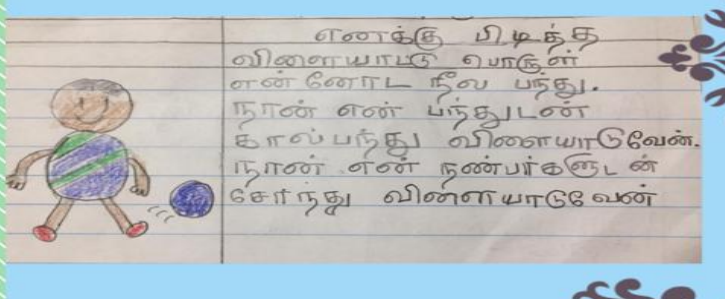 எனக்கு பிடித்த
விளையாட்டு பொருள்
என் னோட நீல பந்து.
நான் என் பந்துடன்
கால்பந்து விளையாடுவேன்.
நான் என் நண்பர்களுடன்
சேர்ந்து விளையாடுவேன்